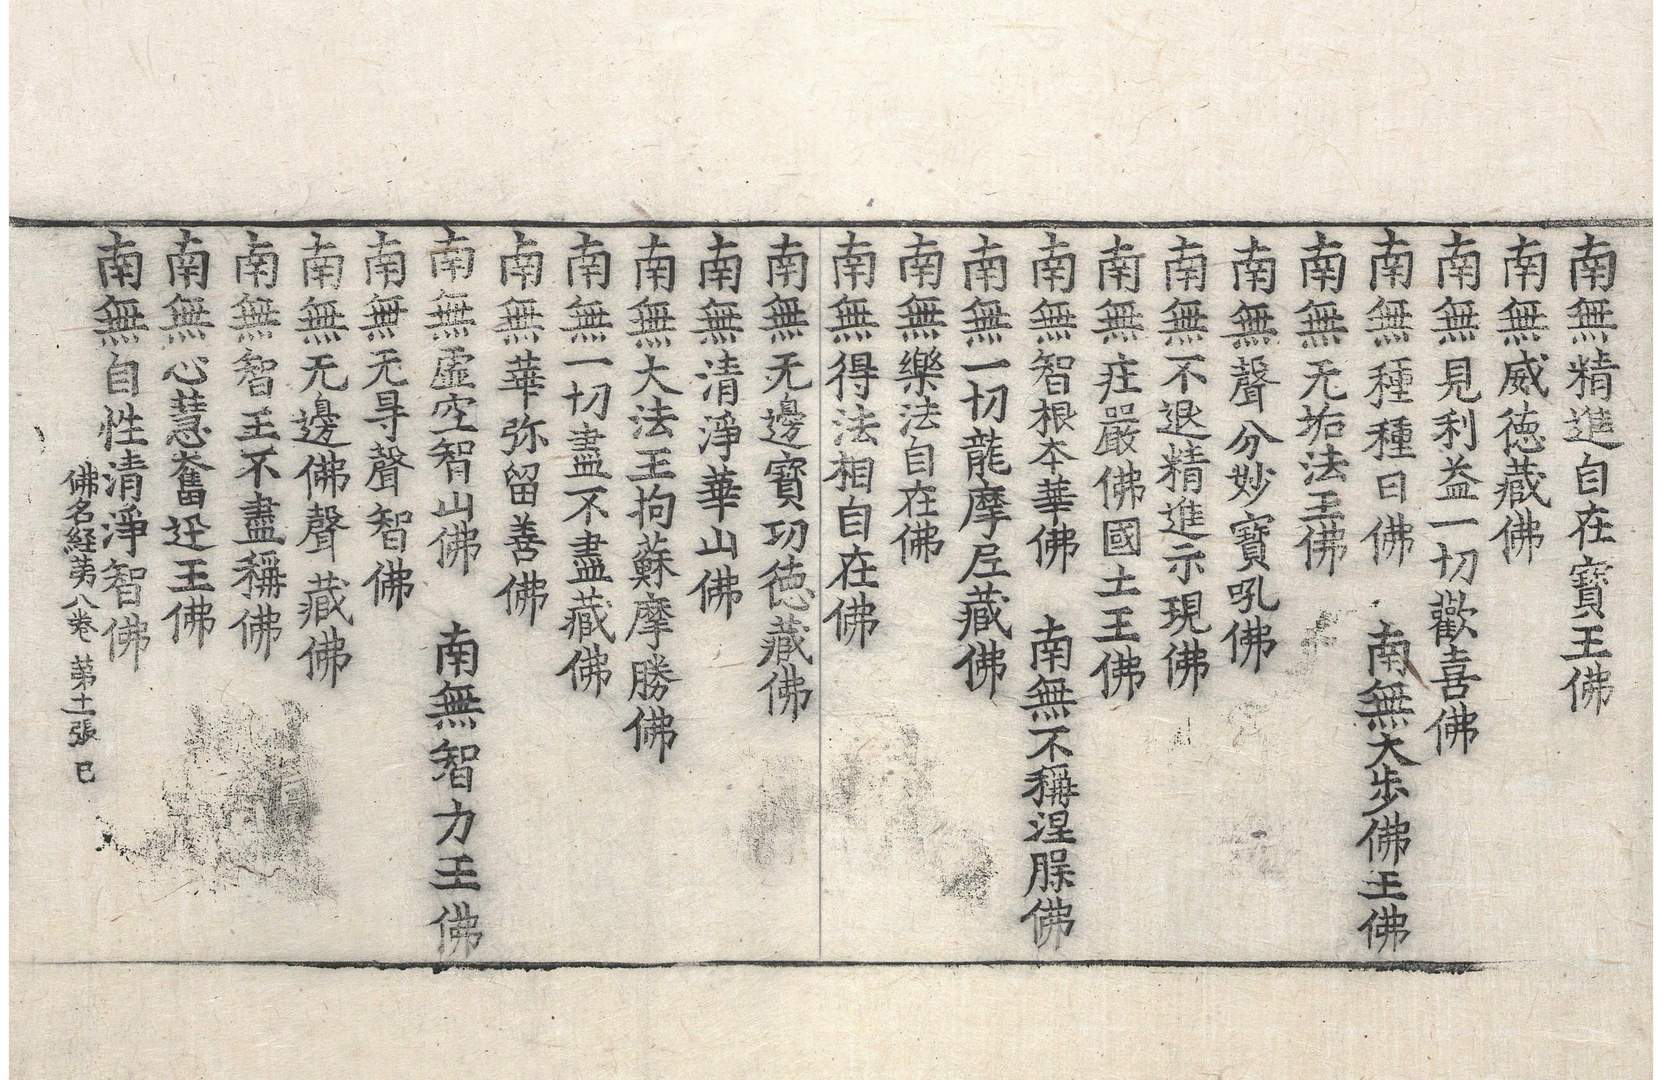 南無精進自在寶王佛
南無威徳藏佛
南無見利益一切歡喜佛
南無種種日佛　南無大歩佛王佛
南無无垢法王佛
南無聲分妙寶吼佛
南無不退精進示現佛
南無庄嚴佛國土王佛
南無智根夲華佛　南無不稱涅腂佛
南無一切龍摩尼藏佛
南無樂法自在佛
南無得法相自在佛
南無无邊寶功徳藏佛
南無清淨華山佛
南無大法王拘蘇摩勝佛
南無一切盡不盡藏佛
南無華弥留善佛
南無虛空智山佛　南無智力王佛
南無无㝵聲智佛
南無无邊佛聲藏佛
南無智王不盡稱佛
南無心慧奮迅王佛
南無自性清淨智佛
佛名経苐八卷　苐十一張　巳